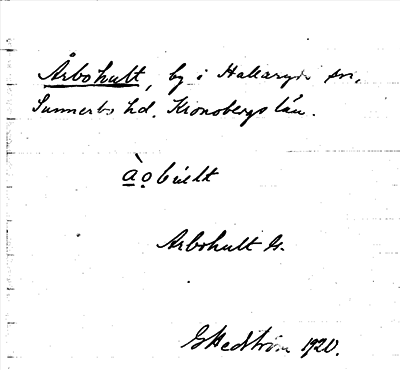 Årbohult, by i Hallaryds sn,
Sunnerbo hd. Kronobergs län.
Arbohult G.
G Hedström 1920.